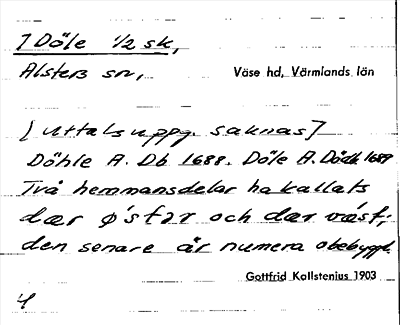 ] Döle 1/2 sk,
Alsters sn, Väse hd, Värmlands län
[uttalsuppg. saknas]
Döhle A. Db 1688. Döle A. Dödb 1689
Två hemmansdelar ha kallats
dær ø'står och dær væst;
den senare är numera obebyggd.
Gottfrid Kallstenius 1903
4